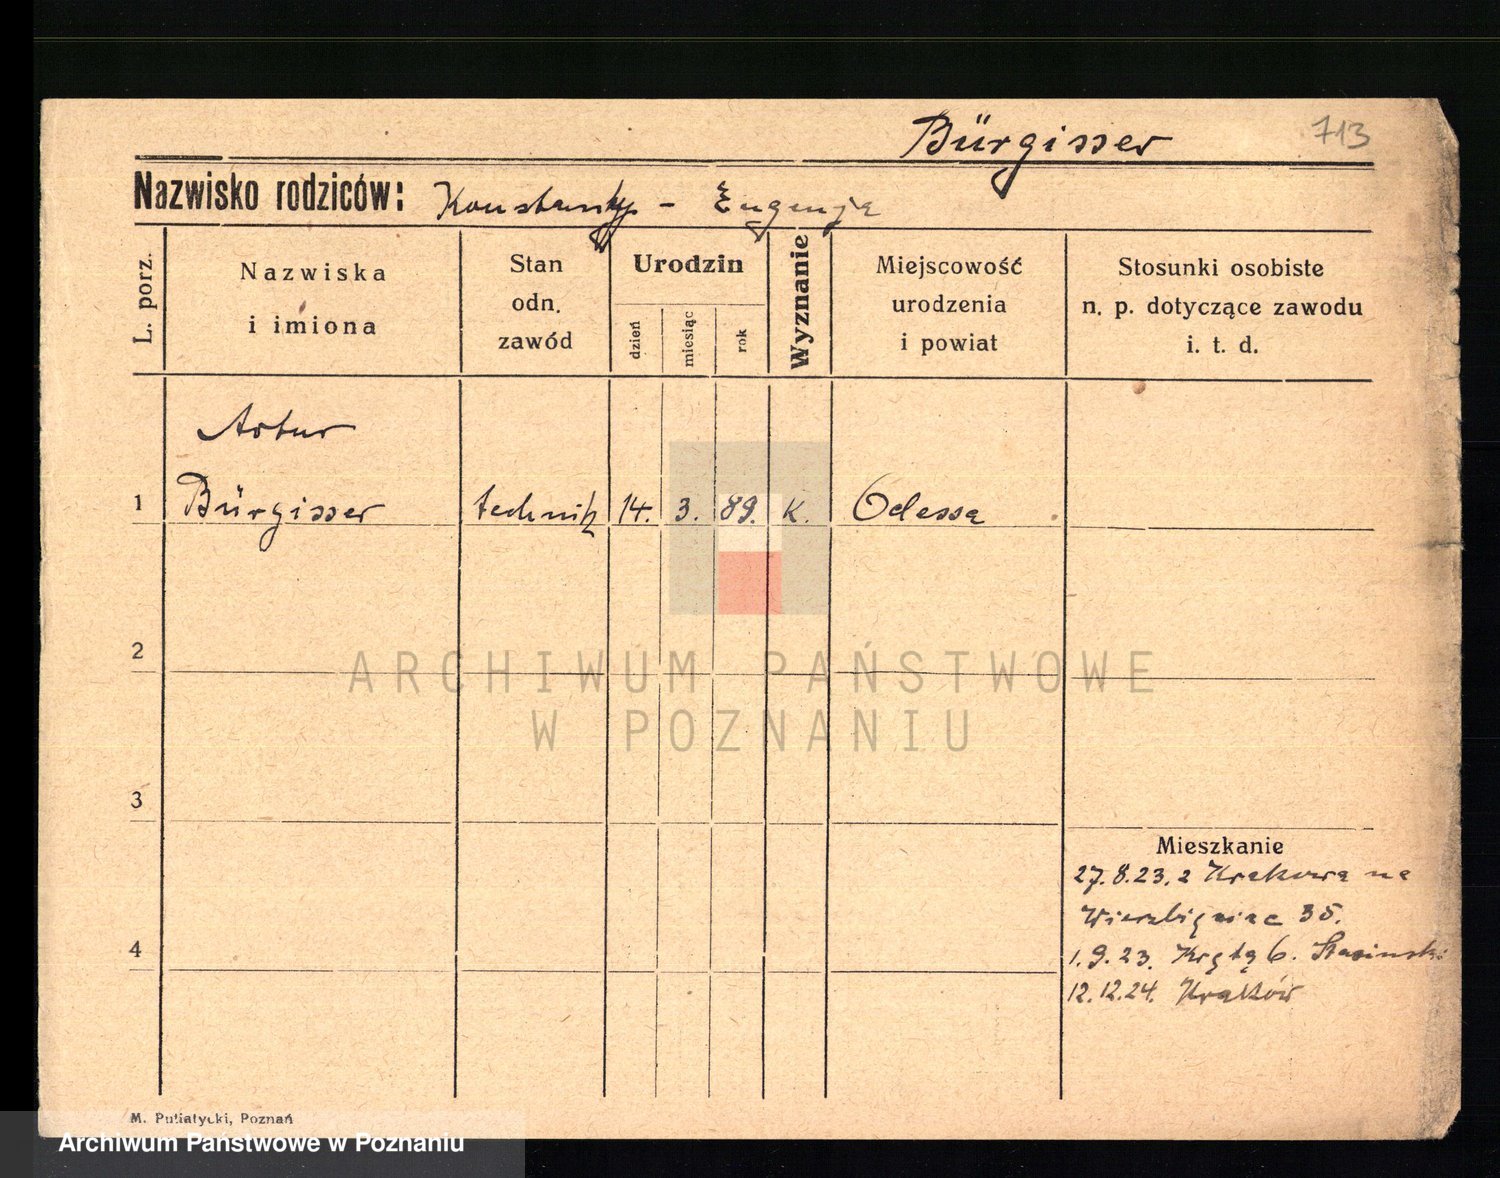 Bürgisser 713
Nazwisko rodziców: Konstanty - Eugenja
L. porz.
Nazwiska
i imiona
Stan
odn.
zawód
Urodzin
dzień
miesiąc
rok
Wyznanie
Miejscowość
urodzenia
i powiat
Stosunki osobiste
n. p. dotyczące zawodu
i. t. d.
Artur
1 Bürgisser technik 14. 3. 89. K. Odessa
2
ARCHIWUM PAŃSTWOWE
W POZNANIU
3
Mieszkanie
27.8.23. z Krakowa na
Wierzbięcice 35.
4
1.9.23. Krętą 6.
12.12.24. Kraków
M. Putiatycki, Poznań
Archiwum Państwowe w Poznaniu